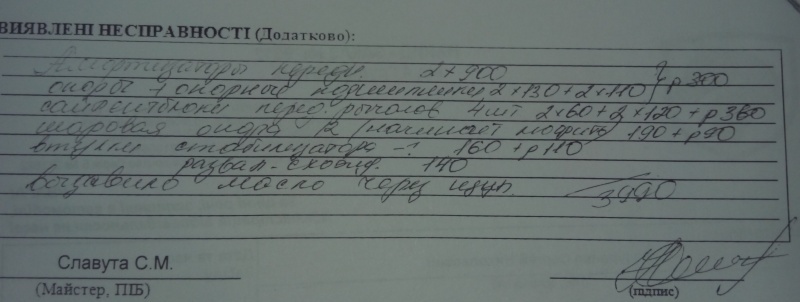 ВИЯВЛЕНІ НЕСПРАВНОСТІ (Додатково):
Амортизаторы передн. 2×900
опоры + опорные подшипники 2×130+2×110 } р300
сайлентблоки перед. рычагов 4шт 2×60+2×120+р360
шаровая опора R (начинает 190+р90
втулки стабилизатора -? 160+р110
развал-сходжд. 140
выдавило масло через щуп 3990
Славута С.М.
(Майстер, ПІБ) (підпис)